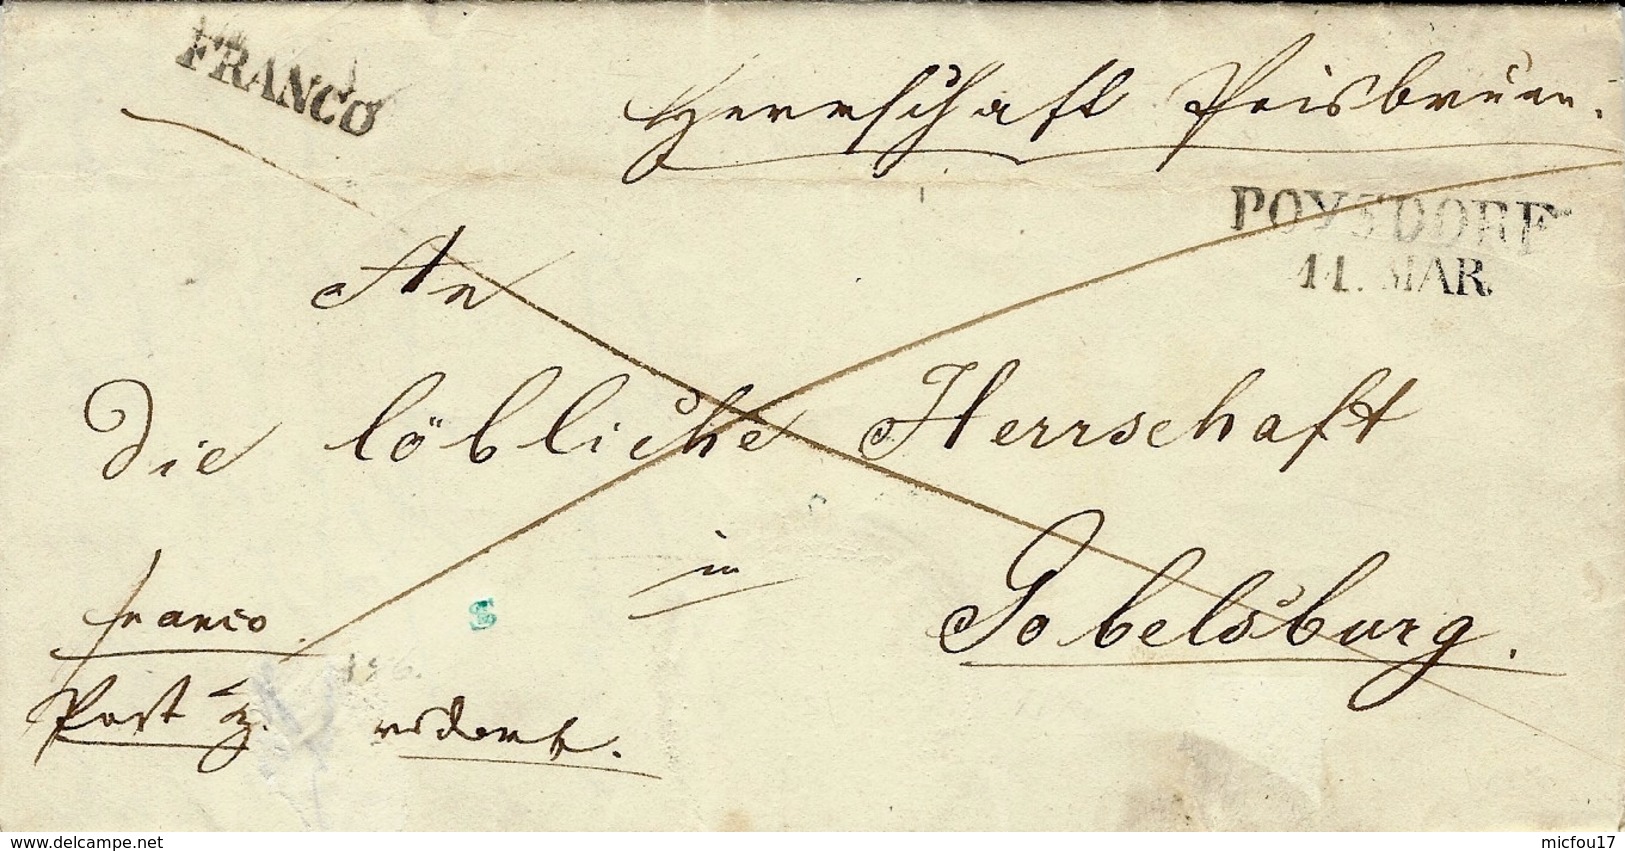 FRANCO
Herrschaft Prisbruen.
POYSDORF
11. MAR.
An
Die löbliche Herrschaft
in
Gobelsburg.
franco.
196.
Post
delcampe.net
micfou17